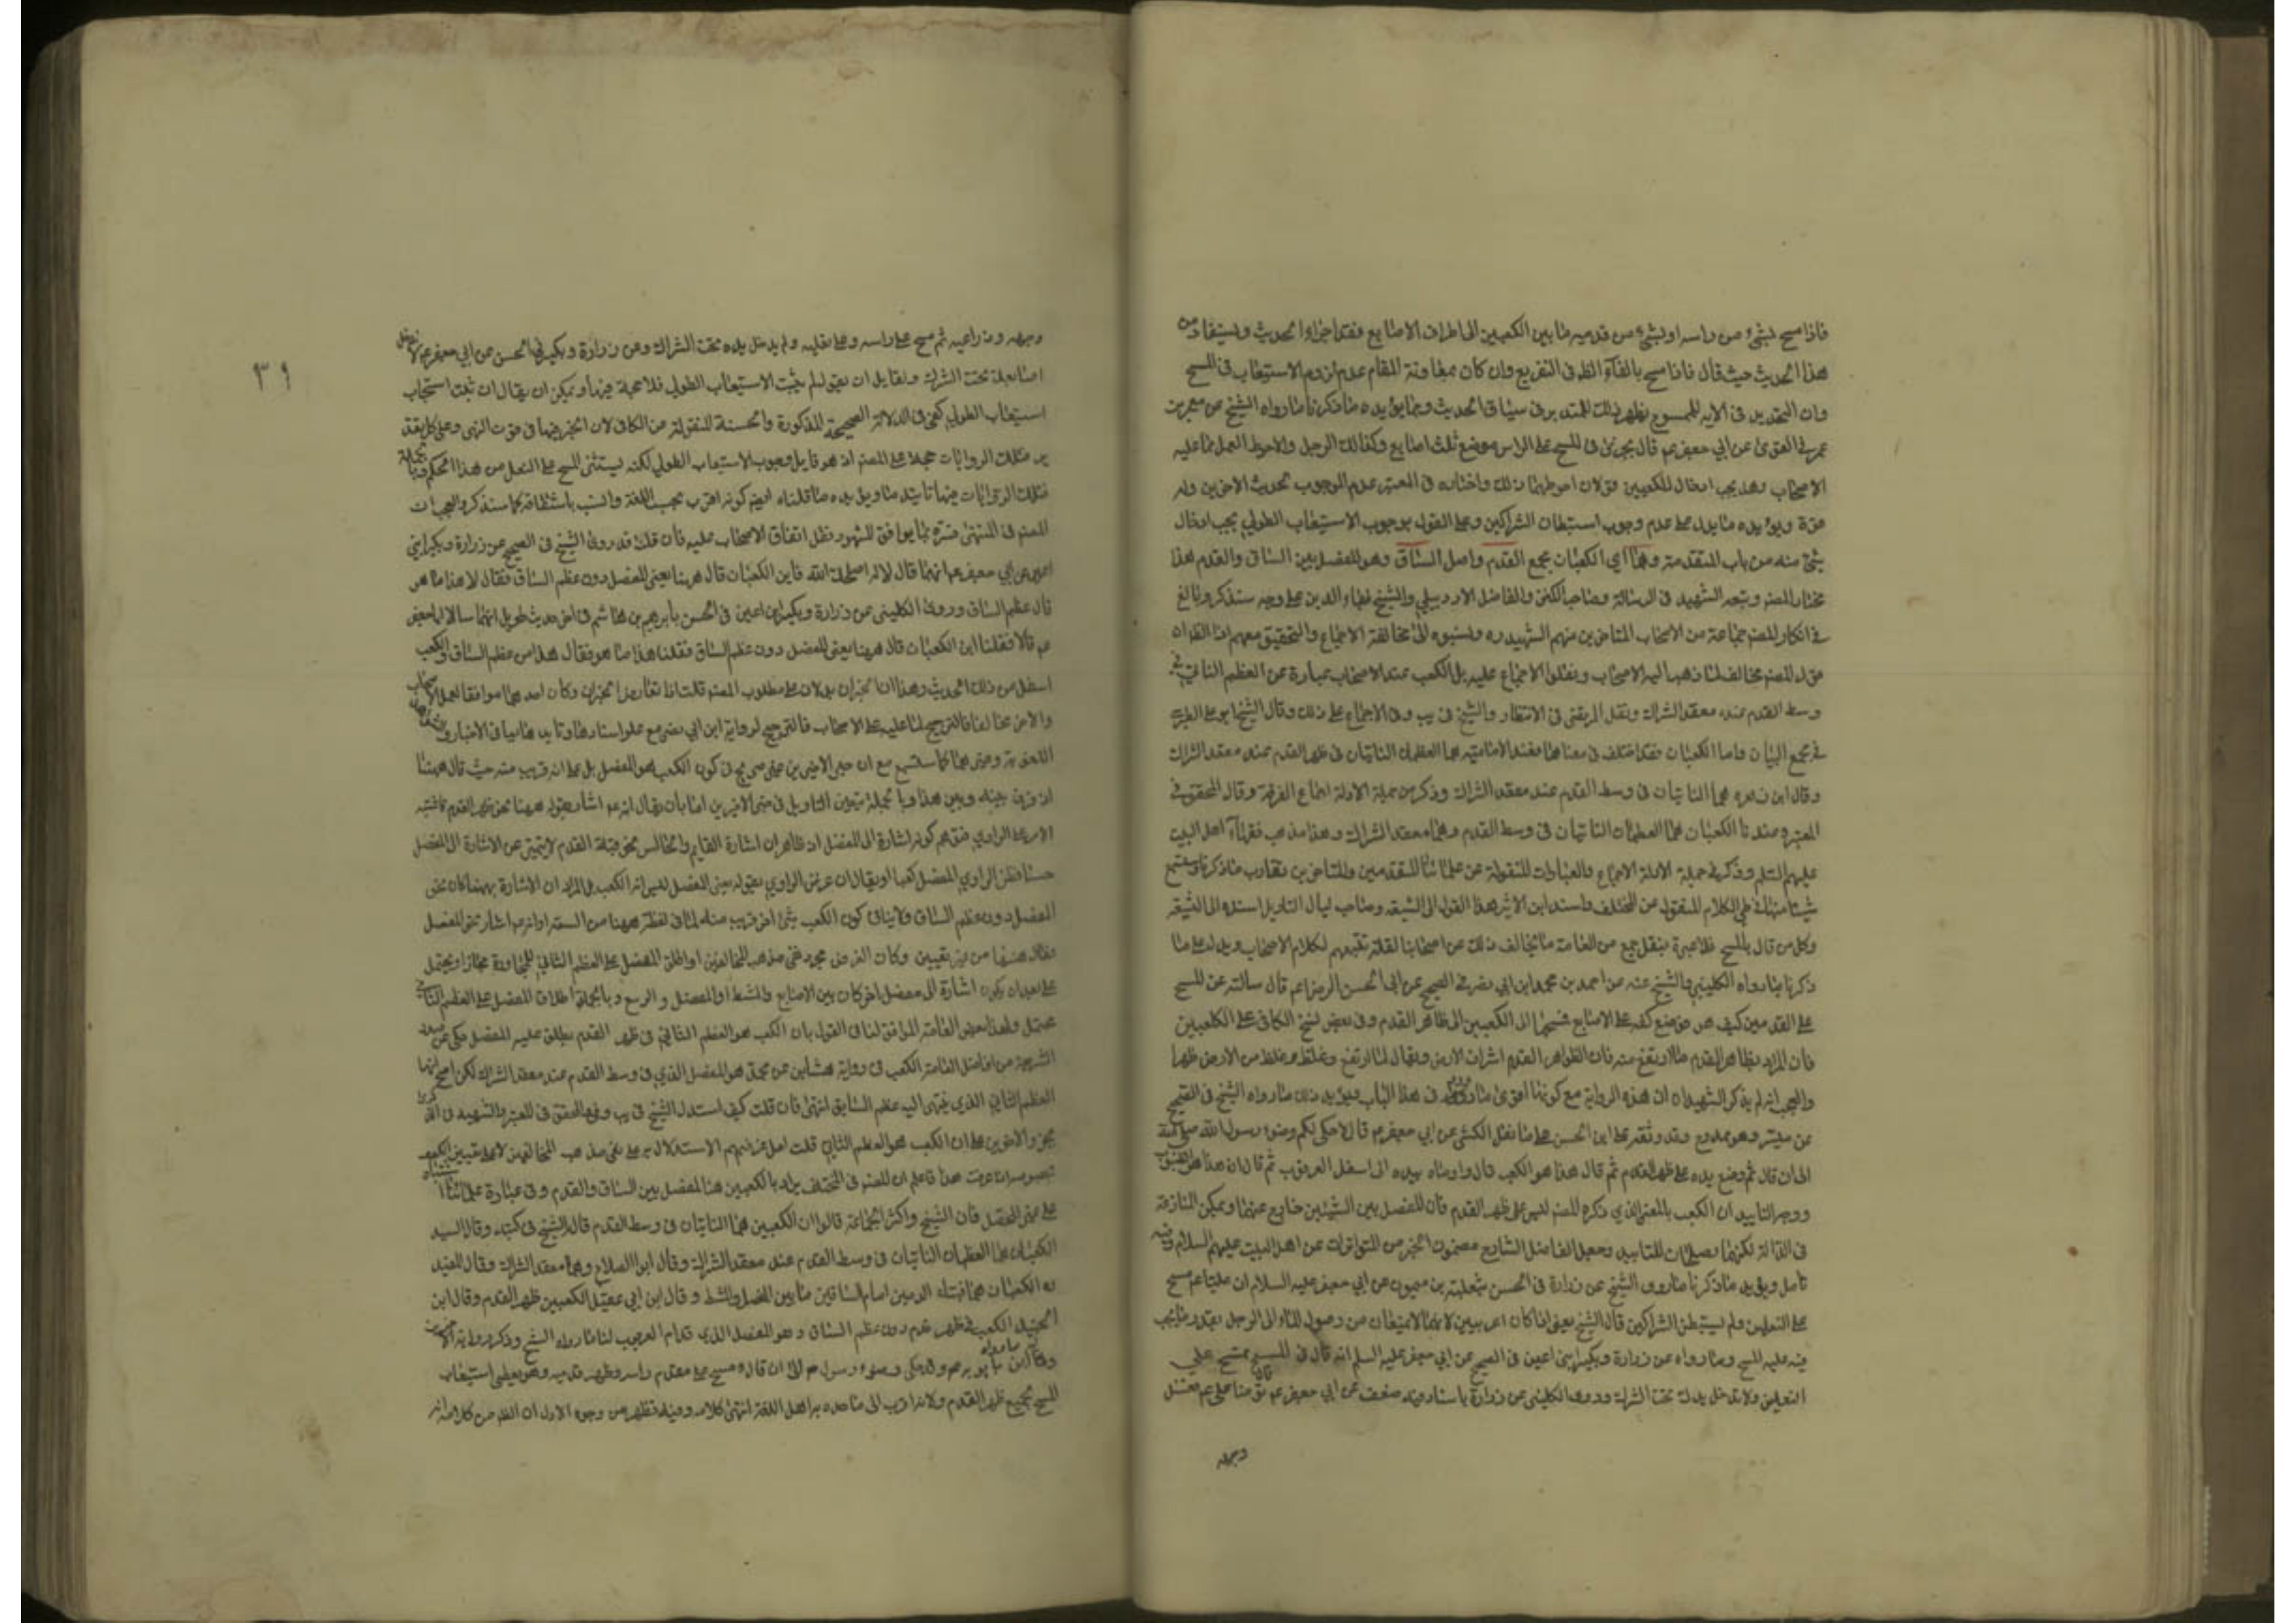 فاذا مسح بشئ من راسه او بشئ من قدميه ما بين الكعبين الى اطراف الاصابع فقد اجزاه الحديث ويستفاد من
هذا الحديث حيث قال فاذا مسح بالفاء الظ في التفريع وان كان بمعاونة المقام عدم لزوم الاستيعاب في المسح
وان التحديد في الاية للممسوح يظهر ذلك للمتدبر في سياق الحديث ومما يؤيده ما ذكرنا ما رواه الشيخ عن معمر بن
عمر في القوى عن ابي جعفر عم قال يجزى في المسح على الراس موضع ثلث اصابع وكذلك الرجل والاحوط العمل بما عليه
الاصحاب وهل يجب ادخال الكعبين قولان احوطهما ذلك واختاره في المعتبر عدم الوجوب لحديث الاخوين وله
قوة ويؤيده ما يدل على عدم وجوب استبطان الشراكين وعلى القول بوجوب الاستيعاب الطولي يجب ادخال
شئ منه من باب المقدمة وهما اي الكعبان مجمع القدم واصل الساق وهو المفصل بين الساق والقدم هذا
مختار المصنف وتبعه الشهيد في الرسالة وصاحب الكنز والفاضل الاردبيلي والشيخ بهاء الدين على وجه سنذكر وبالغ
في انكار المصنف جماعة من الاصحاب المتاخرين منهم الشهيد ره ونسبوه الى مخالفة الاجماع والتحقيق معهم اذا الظ ان
قول المصنف مخالف لما ذهب اليه الاصحاب ونقلوا الاجماع عليه بل الكعب عند الاصحاب عبارة عن العظم الناتئ في
وسط القدم عند معقد الشراك ونقل المرتضى في الانتصار والشيخ في يب وف الاجماع على ذلك وقال الشيخ ابو على الطبرسي
في مجمع البيان واما الكعبان فقد اختلف في معناهما فعند الامامية هما العظمان الناتيان في ظهر القدم عند معقد الشراك
وقال ابن زهره هما الناتيان في وسط القدم عند معقد الشراك وذكر من جملة الادلة اجماع الفرقة وقال المحقق في
المعتبر وعندنا الكعبان هما العظمان الناتيان في وسط القدم وهما معقد الشراك وهذا مذهب فقهاء اهل البيت
عليهم السلم وذكر في جملة الادلة الاجماع والعبارات المنقولة عن علمائنا المتقدمين والمتاخرين تقارب ما ذكرنا وستسمع
شيئا منها في طي الكلام المنقول عن المختلف واسند ابن الاثير هذا القول الى الشيعة وصاحب لباب التاويل اسنده الى الشيعة
وكل من قال بالمسح فلا عبرة بنقل جمع من العامة ما يخالف ذلك عن اصحابنا لقلة تتبعهم لكلام الاصحاب ويدل على ما
ذكرنا ما رواه الكليني والشيخ عنه عن احمد بن محمد ابن ابي نصر في الصحيح عن ابي الحسن الرضا عم قال سالته عن المسح
على القدمين كيف هو فوضع كفه على الاصابع فمسحها الى الكعبين الى ظاهر القدم وفي بعض نسخ الكافي على الكعبين
فان المراد بظاهر القدم ما ارتفع منه فان الظواهر اشراف الارض ويقال لما ارتفع وغلظ من الارض ظهرا
والعجب انه لم يذكر الشهيدان هذه الرواية مع كونها اقوى ما ورد في هذا الباب ويؤيد ذلك ما رواه الشيخ في الصحيح
عن ميسر وهو ممدوح وقد وثقه على ابن الحسن على ما نقل الكشي عن ابي جعفر عم قال الا احكى لكم وضوء رسول الله صلى الله عليه
الى ان قال ثم وضع يده على ظهر القدم ثم قال هذا هو الكعب قال واوماه بيده الى اسفل العرقوب ثم قال ان هذا هو الظنبوب
ووجه التاييد ان الكعب بالمعنى الذي ذكره المصنف ليس على ظهر القدم فان المفصل بين الشيئين خارج عنهما ويمكن المنازعة
في الدلالة لكنهما يصلحان للتاييد وجعل الفاضل الشارح مضمون الخبر من المتواترات عن اهل البيت عليهم السلام وفيه
تامل ويؤيد ما ذكرنا ما روى الشيخ عن زرارة في الحسن بثعلبة بن ميمون عن ابي جعفر عليه السلام ان عليا عم مسح
على النعلين ولم يستبطن الشراكين قال الشيخ يعنى اذا كانا عربيين لانهما لا يمنعان من وصول الماء الى الرجل بقدر ما يجب
فيه عليه المسح وما رواه عن زرارة وبكير ابني اعين في الصحيح عن ابي جعفر عليه السلم انه قال في المسح تمسح على
النعلين ولا تدخل يدك تحت الشراك وروى الكليني عن زرارة باسناد فيه ضعف عن ابي جعفر عم توضا على عم فغسل
وجهه
٣٩
وجهه وذراعيه ثم مسح على راسه وعلى نعليه ولم يدخل يده تحت الشراك وعن زرارة وبكير في الحسن عن ابي جعفر عم لا تدخل
اصابعك تحت الشراك ولقايل ان يقول لم يثبت الاستيعاب الطولي فلا حجة فيها ويمكن ان يقال ان ثبت استحباب
استيعاب الطولي كفى في الدلالة الصحيحة المذكورة والحسنة المنقولة عن الكافي لان الخبر فيهما في قوة النهى وعلى كل تقدير
تلك الروايات حجة على المصنف اذ هو قايل بوجوب الاستيعاب الطولي لكنه يستثنى المسح على النعل من هذا الحكم وبالجملة
فتلك الروايات فيها تاييد ما ويؤيده ما قلناه ايضا كونه اقرب بحسب اللغة وانسب باشتقاقه كما سنذكر والعجب ان
المصنف في المنتهى فسره بما يوافق المشهور ونقل اتفاق الاصحاب عليه فان قلت قد روى الشيخ في الصحيح عن زرارة وبكير ابني
اعين عن ابي جعفر عم انهما قالا له اصلحك الله فاين الكعبان قال ههنا يعنى المفصل دون عظم الساق فقالا هذا ما هو
قال عظم الساق وروى الكليني عن زرارة وبكير ابن اعين في الحسن بابرهيم بن هاشم في اخر حديث طويل انهما سالا ابا جعفر
عم قالا فقلنا اين الكعبان قال ههنا يعنى المفصل دون عظم الساق فقلنا هذا ما هو فقال هذا من عظم الساق والكعب
اسفل من ذلك الحديث وهذان الخبران يدلان على مطلوب المصنف قلت اذا تعارض الخبران وكان احدهما موافقا لعمل الاصحاب
والاخر مخالفا فالترجيح لما عليه عمل الاصحاب فالترجيح لرواية ابن ابي نصر مع علو اسنادها وتاييدها بباقي الاخبار
اللغوية وغيرهما كما ستسمع مع ان خبر الاخوين غير صريح في كون الكعب هو المفصل بل على انه قريب منه حيث قال ههنا
اذ فرق بينه وبين هذا وبالجملة يتعين التاويل في خبر الاخوين اما بان يقال انه عم اشار بقوله ههنا نحو ظهر القدم فاشتبه
الامر على الراوي فتوهم كونه اشارة الى المفصل اذ ظاهر ان اشارة القايم والجالس نحو قبة القدم لا يتميز عن الاشارة الى المفصل
حسا فظن الراوي المفصل كعبا او يقال ان غرض الراوي بقوله يعنى المفصل ليس انه الكعب بل المراد ان الاشارة بههنا كان نحو
المفصل دون عظم الساق ولا ينافي كون الكعب شئ اخر قريب منه لما في لفظة ههنا من السعة او انه عم اشار نحو المفصل
على بعد ان يكون اشارة الى مفصل اخر كان بين الاصابع والمشط او المفصل والرسغ وبالجملة اطلاق المفصل على العظم الناتئ
محتمل ولهذا بعض العامة الموافق لنا في القول بان الكعب هو العظم الناتئ في ظهر القدم يطلق عليه المفصل حكى عن صدر
الشريعة من افاضل العامة الكعب في رواية هشام عن محمد هو المفصل الذي في وسط القدم عند معقد الشراك لكن الاصح انها
العظم الناتئ الذي ينتهى اليه عظم الساق انتهى فان قلت كيف استدل الشيخ في يب وف والمحقق في المعتبر والشهيد في الذكرى
بخبر الاخوين على ان الكعب هو العظم الناتئ قلت لعل غرضهم الاستدلال به على نفى مذهب المخالفين لا على تعيين الكعب
بخصوصه اذا عرفت هذا فاعلم ان المصنف في المختلف يراد بالكعبين هنا المفصل بين الساق والقدم وفي عبارة علمائنا اشتباه
على غير المحصل فان الشيخ واكثر الجماعة قالوا ان الكعبين هما الناتيان في وسط القدم قاله الشيخ في كتبه وقال السيد
الكعبان هما العظمان الناتيان في وسط القدم عند معقد الشراك وقال ابو الصلاح وهما معقد الشراك وقال المفيد
ره الكعبان هما قبتا القدمين امام الساقين ما بين المفصل والمشط وقال ابن ابي عقيل الكعبين ظهر القدم وقال ابن
الجنيد الكعب في ظهر قدم دون عظم الساق وهو المفصل الذي قدام العرقوب لنا ما رواه الشيخ وذكر رواية الاخوين
وما رواه ابن بابويه عم وقد حكى وضوء رسول الله الى ان قال ومسح على مقدم راسه وظهر قدميه وهو يعطى استيعاب
المسح لجميع ظهر القدم ولانه اقرب الى ما حدده به اهل اللغة انتهى كلامه وفيه نظر من وجوه الاول ان الظ من كلامه انه